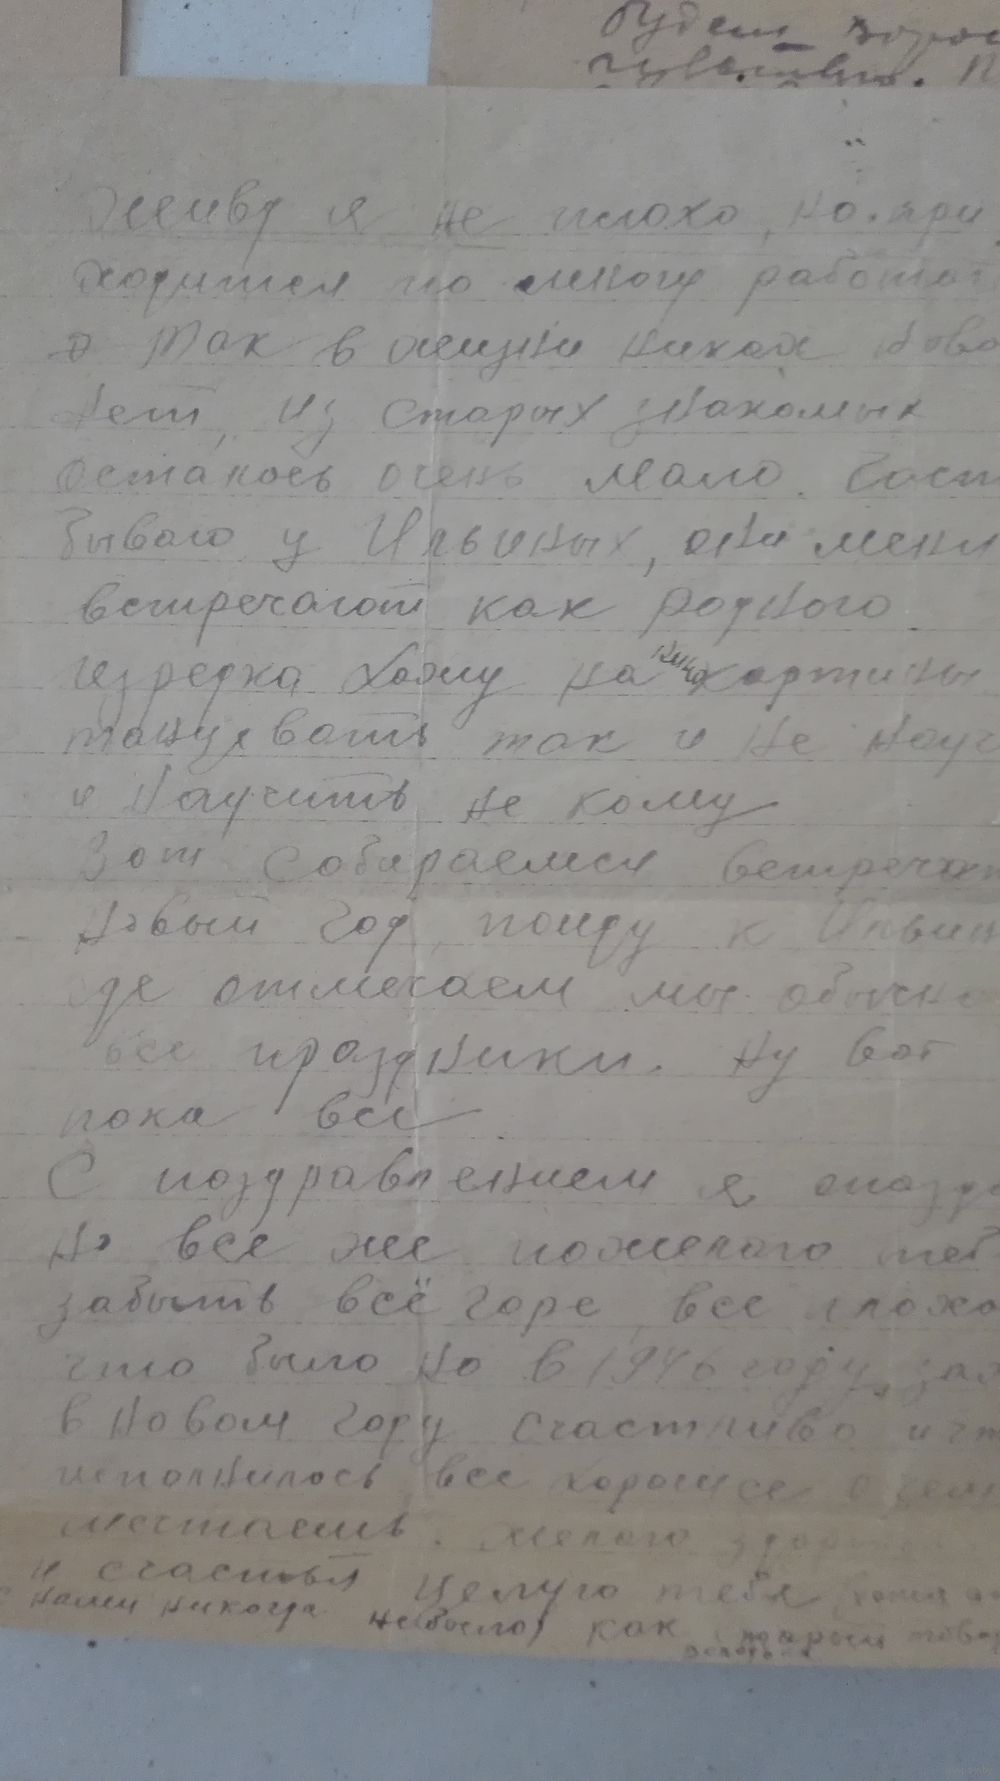 будем
чувствы. П
Живу я не плохо, но при
ходится по многу работат
а так в жизни никах ново
нет, из старых знакомых
осталось очень мало. Част
бываю у Ильиных, они меня
встречают как родного.
изредка хожу на кино картины
танцевать так и не науч
и научить не кому
Вот собираемся встречат
Новый год, поиду к Ильин
где отмечаем мы обычно
все праздники. Ну вот
пока все
С поздравлением я опозд
Но все же пожелаю теб
забыть всё горе, все плохо
что было но в 1946 году,
в новом году счастливо и чт
исполнилось все хорошее о чем
мечтаешь. Желаю здо
и счастья целую тебя хотя
нами никогда не было) как старый товар